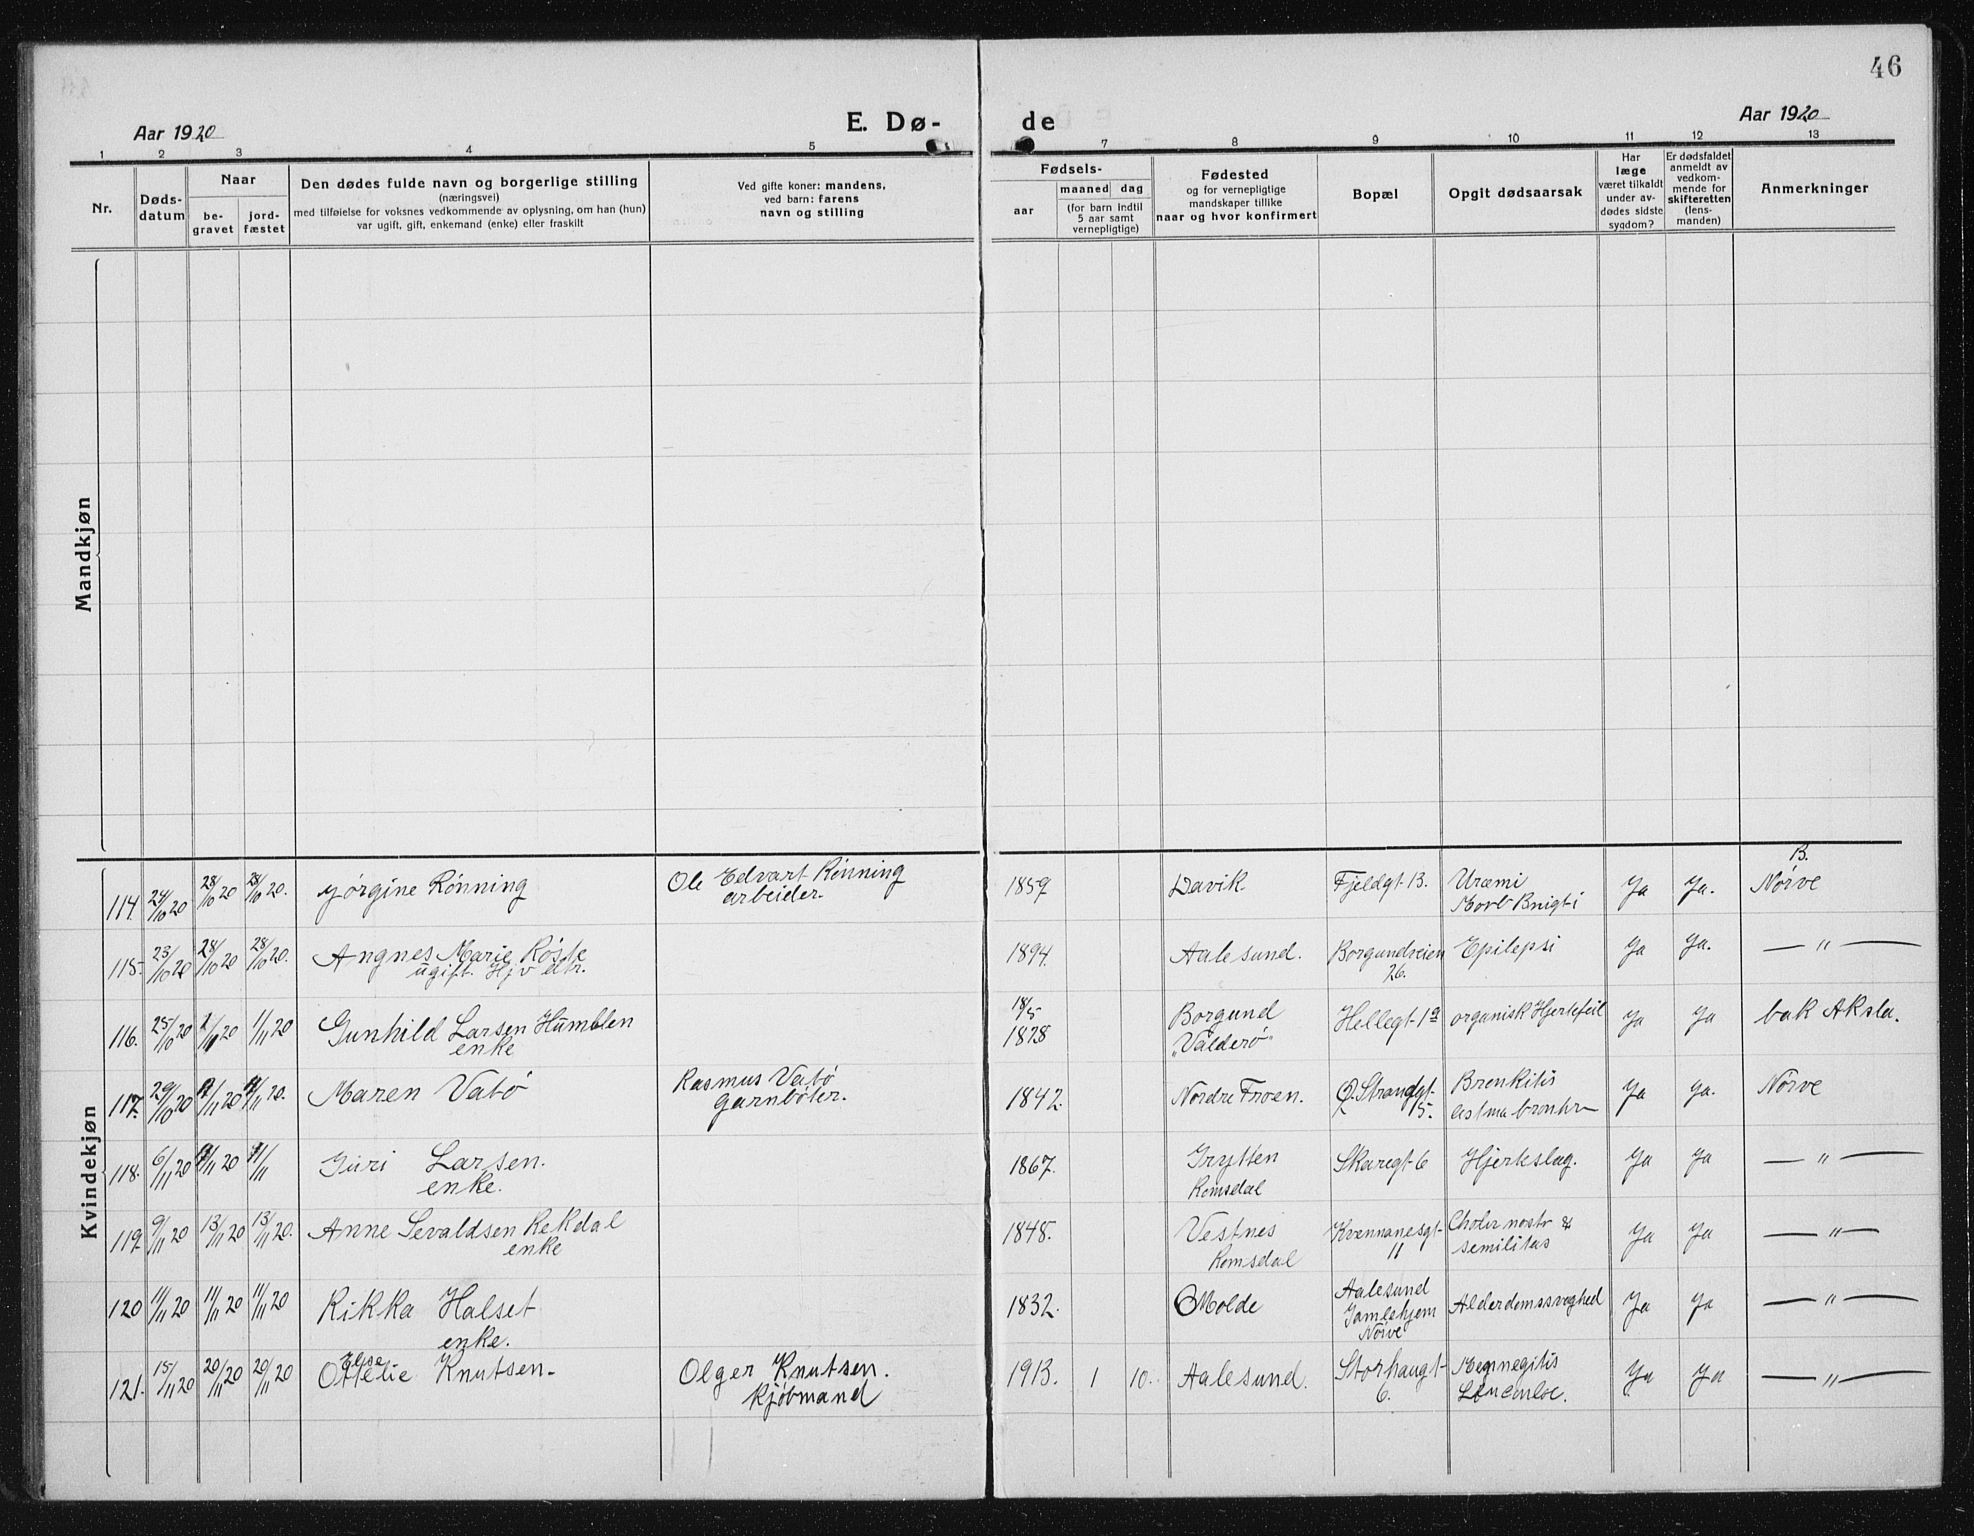 46
Aar 1920
E. Dø-
de
Aar 1920
1 2 3 4 5 7 8 9 10 11 12 13
Nr.
Døds-
datum
Naar
be-
gravet
jord-
fæstet
Den dødes fulde navn og borgerlige stilling
(næringsvei)
med tilføielse for voksnes vedkommende av oplysning, om han (hun)
var ugift, gift, enkemand (enke) eller fraskilt
Ved gifte koner: mandens,
ved barn: farens
navn og stilling
Fødsels-
aar
maaned dag
(for barn indtil
5 aar samt
vernepligtige)
Fødested
og for vernepligtige
mandskaper tillike
naar og hvor konfirmert
Bopæl
Opgit dødsaarsak
Har
læge
været tilkaldt
under av-
dødes sidste
sygdom?
Er dødsfaldet
anmeldt av
vedkom-
mende for
skifteretten
(lens-
manden)
Anmerkninger
Mandkjøn
Kvindekjøn
114 24/10 20 28/10 20 28/10 20. Jörgine Rönning
Ole Edvart Rönning
arbeider.
1859 Davik Fjeldgt 13. Uræmi
Morb Bnigti
Ja Ja. B.
Nörve
115. 23/10 20 28/10 20 28/10 20. Angnes Marie Röste
ugift. Hjv dtr.
1894. Aalesund. Borgundveien
26.
Epilepsi Ja Ja. — " —
116. 25/10 20 1/11 20 1/11 20 Gunhild Larsen Humblen
enke
18/5
1828
Borgund
"Valderö"
Hellegt 1a organisk Hjertefeil Ja Ja bak Aksla.
117. 29/10 20 /11 20 /11 20. Maren Vatö
Rasmus Vatö
garnböter.
1842. Nordre Froen. Ø. Strandgt.
5.
Bronkitis
astma bronkr
Ja Ja. Nörve
118. 6/11 20 /11 20 11/11 Guri Larsen.
enke.
1867. Grytten
Romsdal
Skaregt 6 Hjerteslag. Ja Ja — " —
119. 9/11 20 13/11 20 13/11 20. Anne Sevaldsen Rekdal
enke
1848. Vestnes
Romsdal
Kvennanesgt
11
Choler nostr &
semilitas
Ja Ja — " —
120 11/11 20 11/11 20 11/11 20 Rikka Halset
enke.
1832. Molde Aalesund
Gamlehjem
Nörve
Alderdomssvaghed Ja Ja — " —
121. 15/11 20 20/11 20 20/11 20 Else
Ottelie Knutsen.
Olger Knutsen.
kjöbmand
1913. 1 10. Aalesund. Storhaugt
6.
Mennegitis
Ja Ja — " —